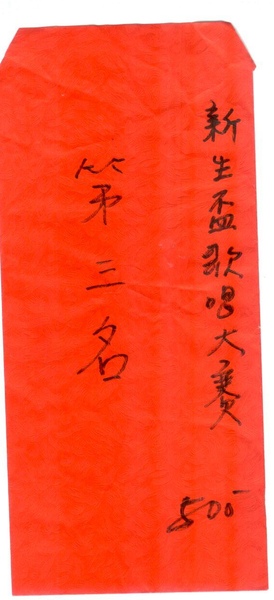 新生盃歌唱大賽
500
第三名